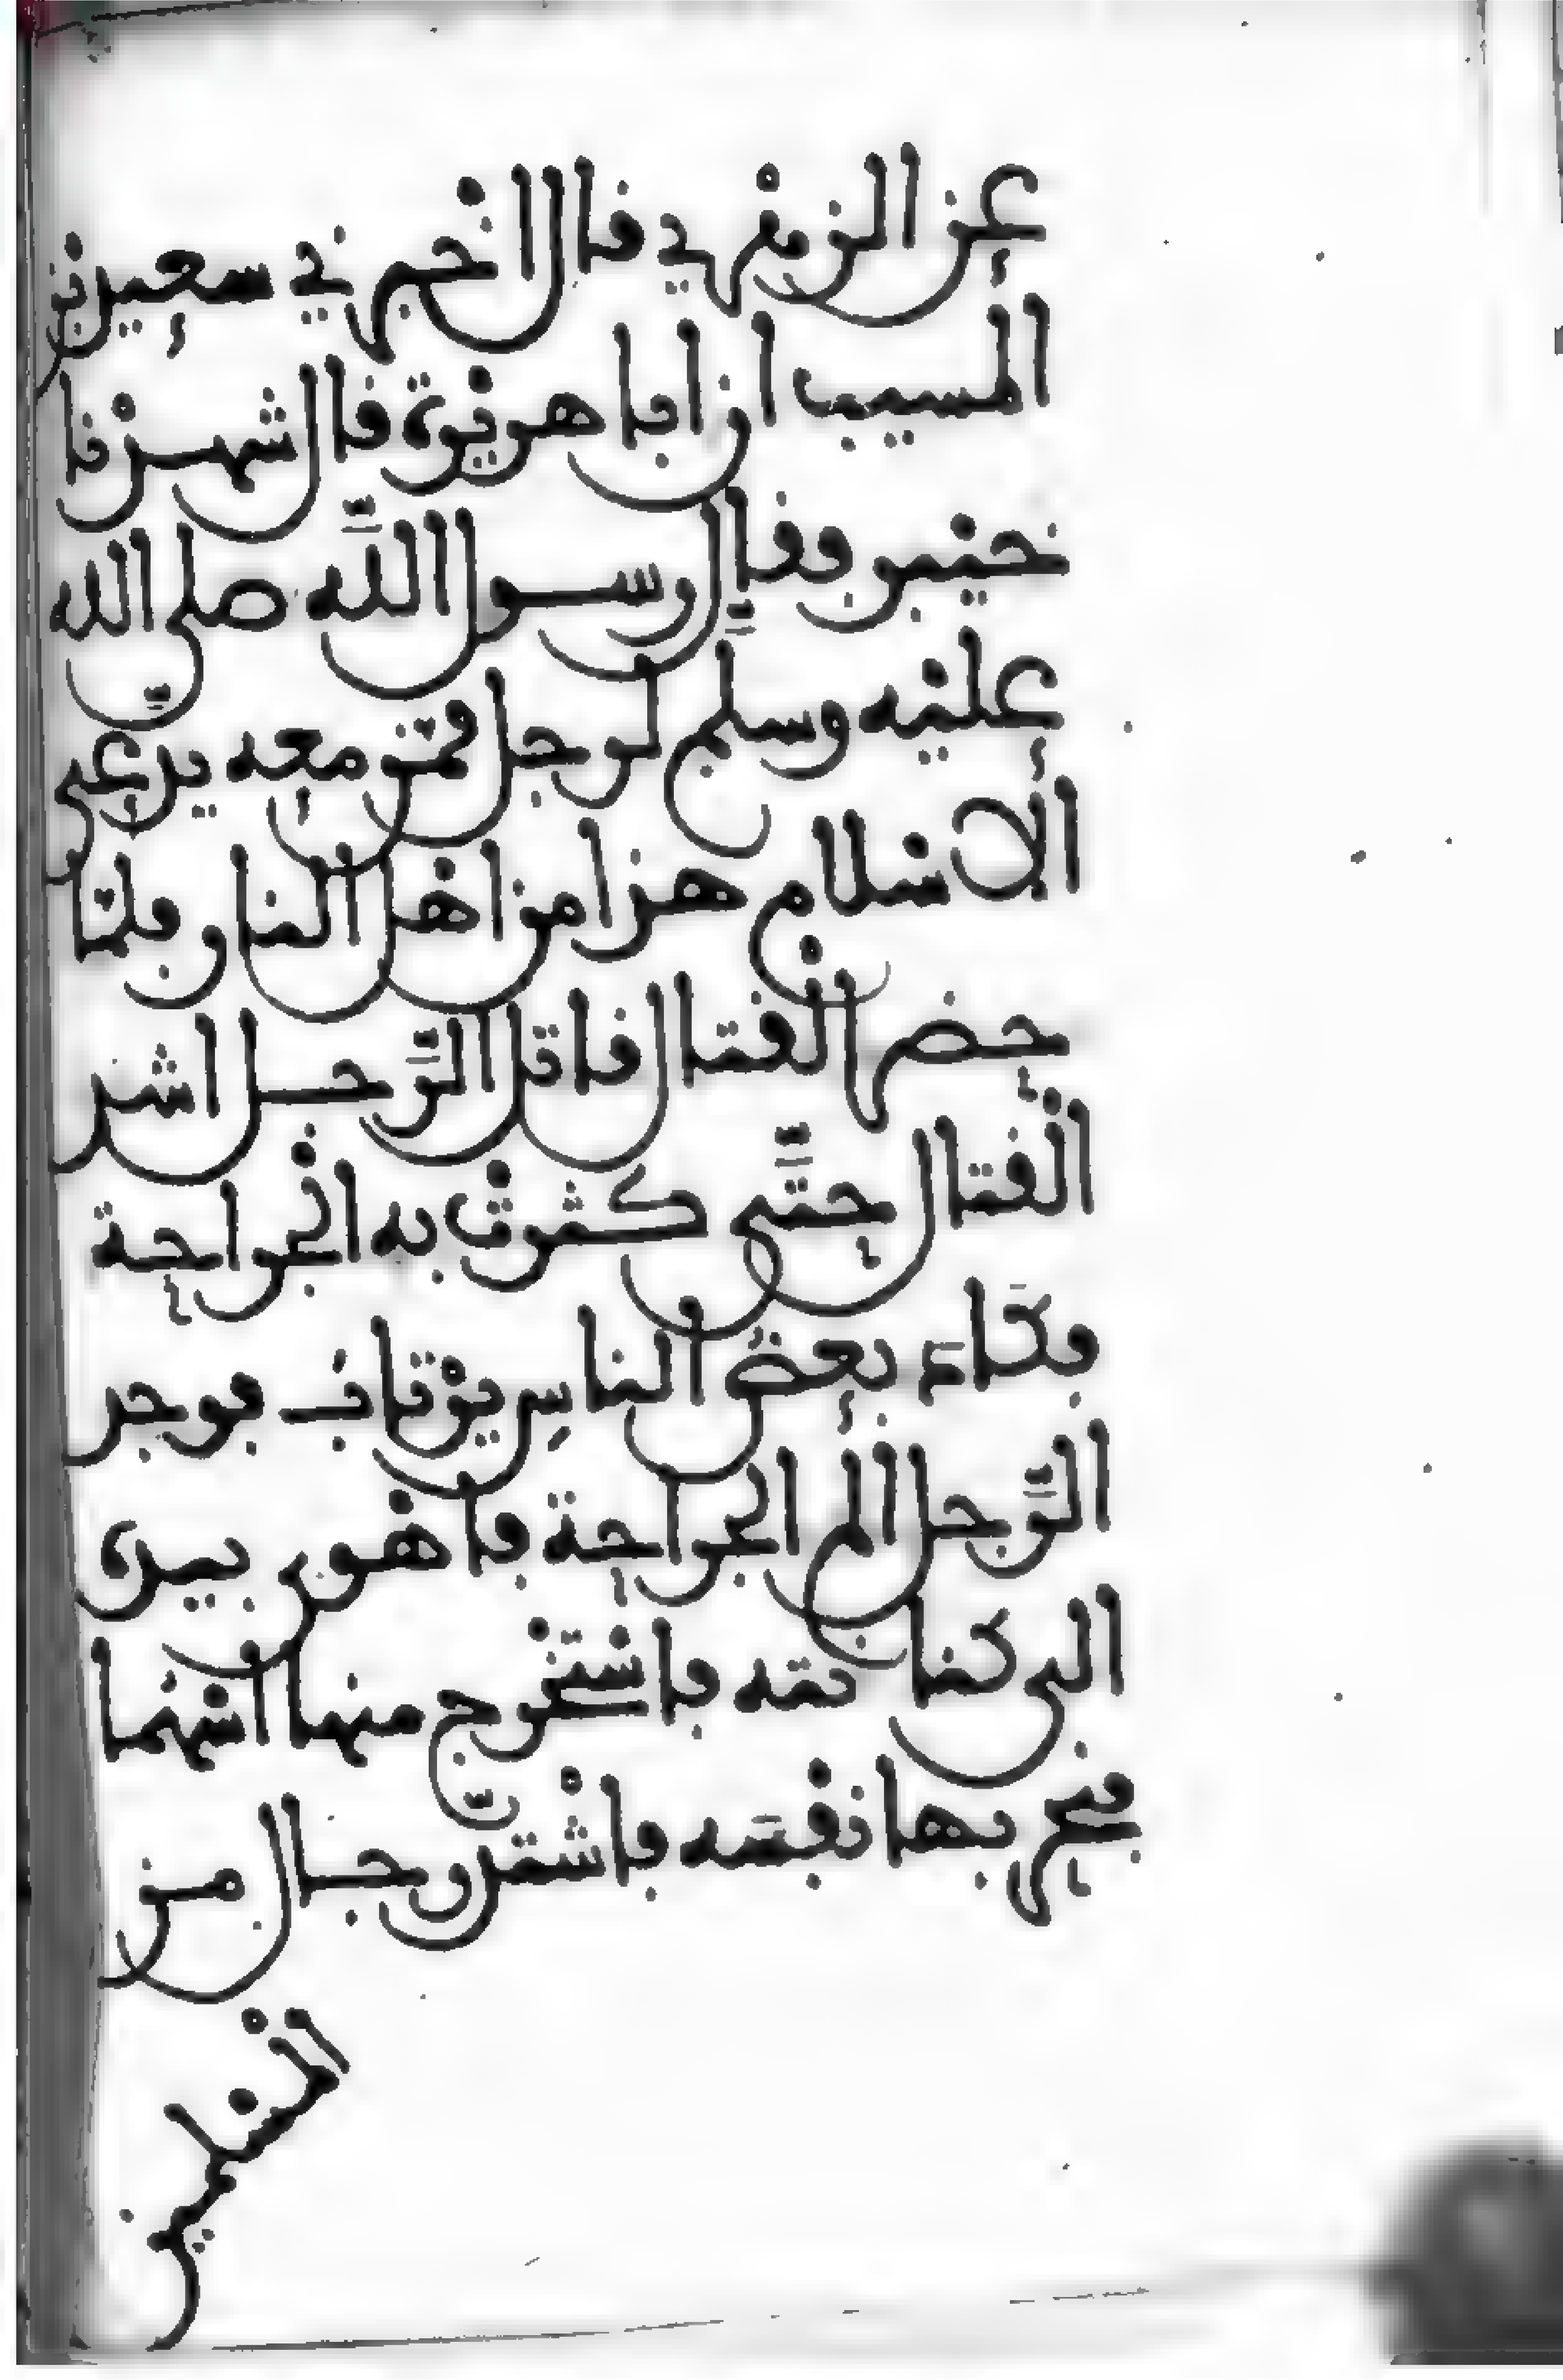 عن الزهري قال اخبرني سعيد بن
المسيب ان ابا هريرة قال شهدنا
خيبر فقال رسول الله صلى الله
عليه وسلم لرجل ممن معه يدعي
الاسلام هذا من اهل النار فلما
حضر القتال قاتل الرجل اشد
القتال حتى كثرت به الجراحة
فكاد بعض الناس يرتاب فوجد
الرجل الم الجراحة فاهوى بيده
الى كنانته فاستخرج منها اسهما
فنحر بها نفسه فاشتد رجال من
المسلمين